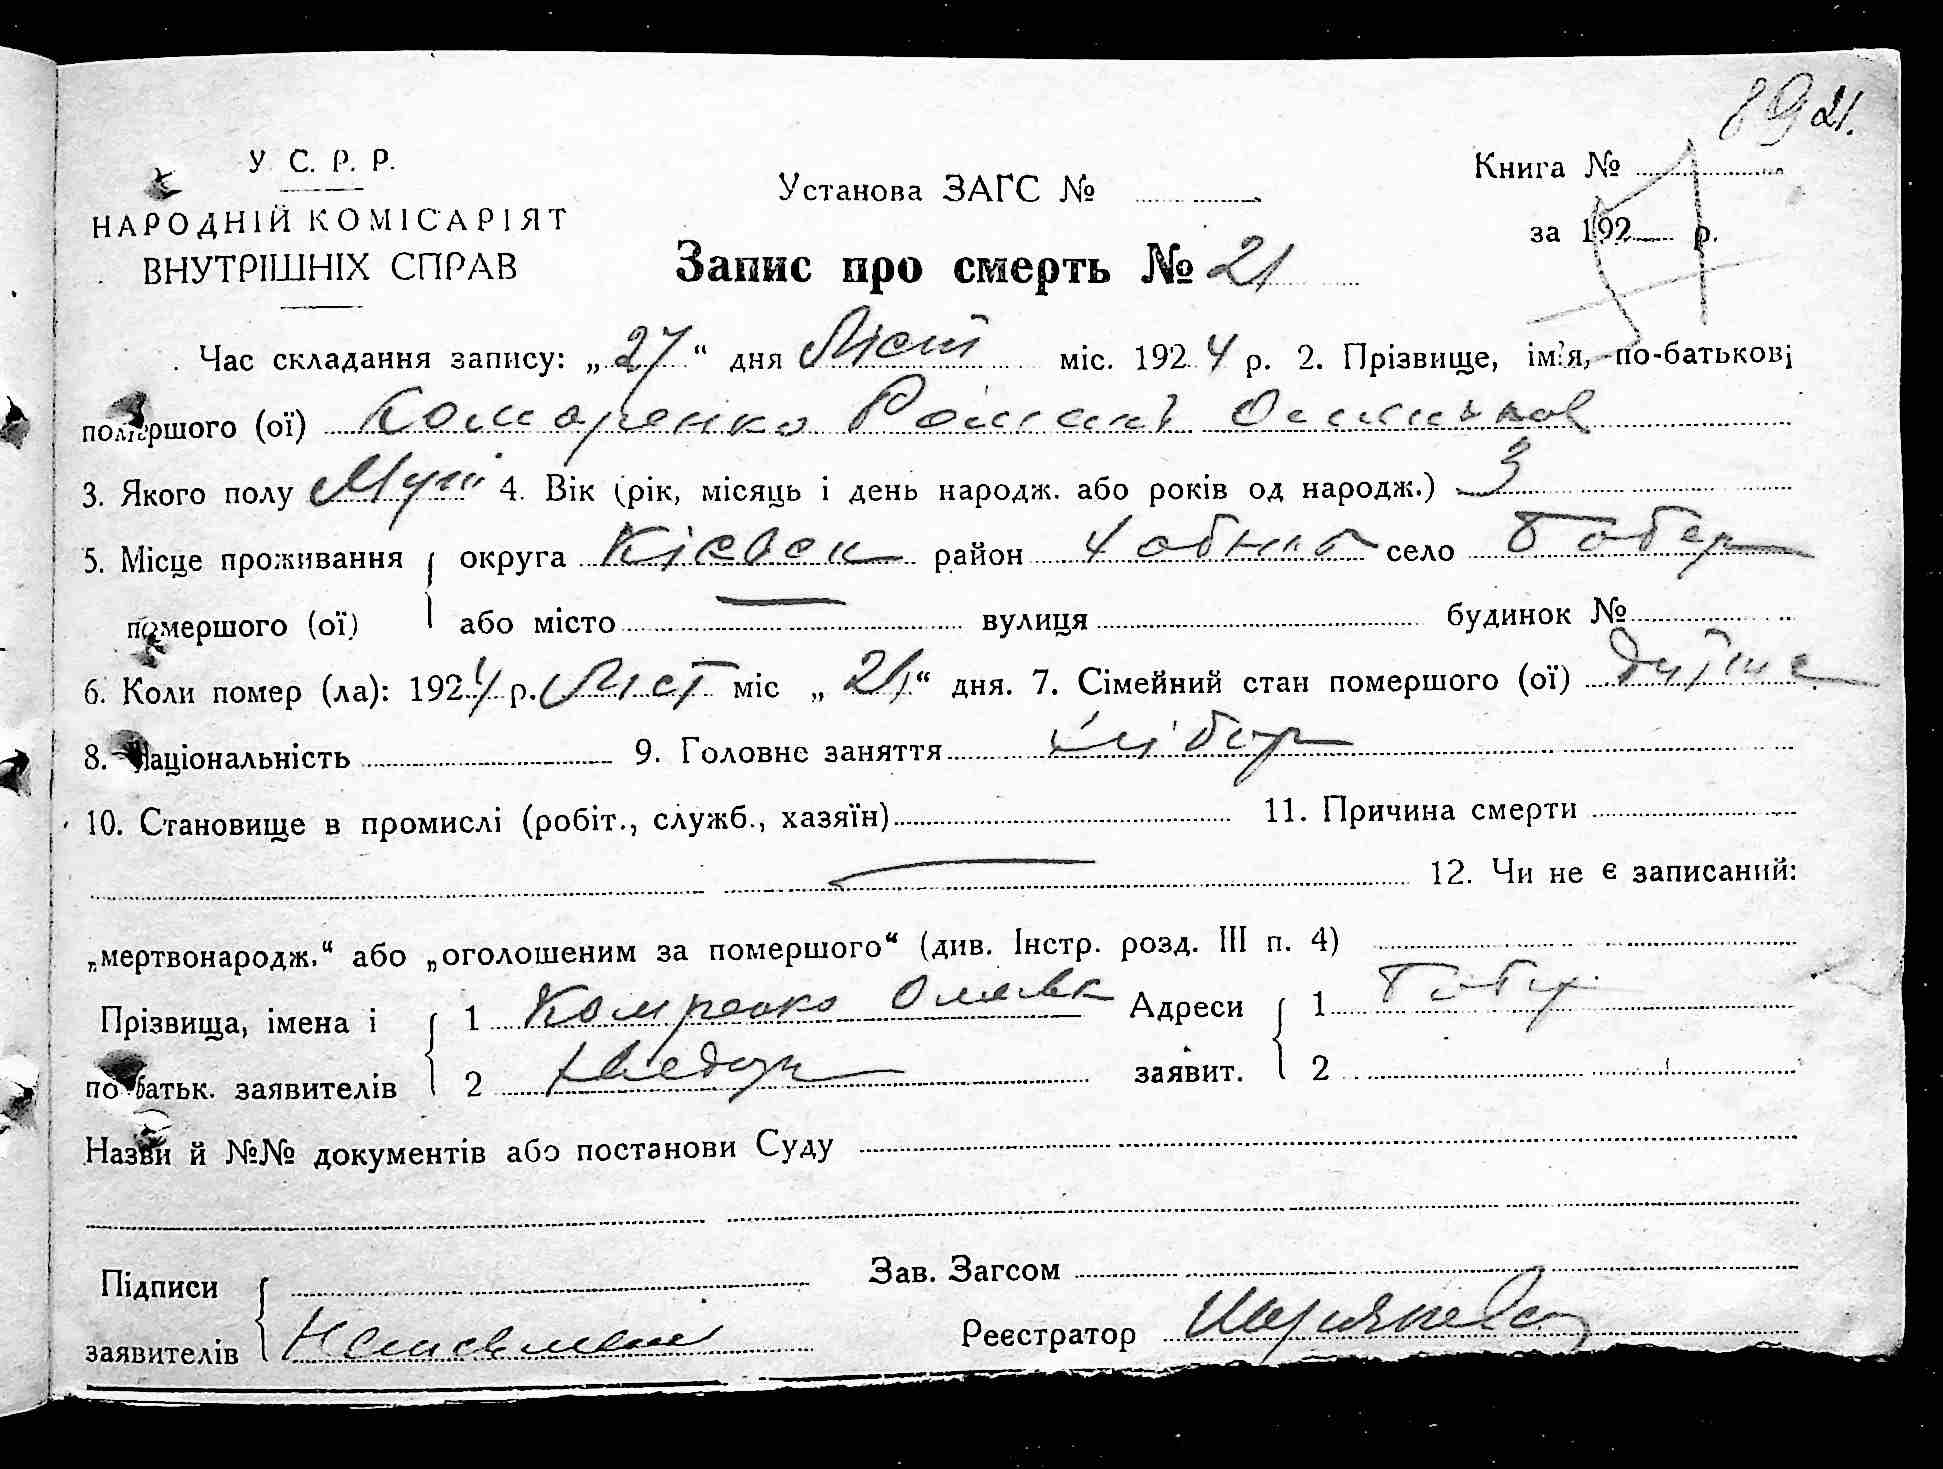 89 21.
У. С. Р. Р.
НАРОДНІЙ КОМІСАРІЯТ
ВНУТРІШНІХ СПРАВ
Установа ЗАГС №
Книга №
за 192 р.
Запис про смерть № 21
Час складання запису: „27“ дня Ліст міс. 1924 р. 2. Прізвище, ім'я, по-батькові
помершого (ої) Комаренко
3. Якого полу Муж 4. Вік (рік, місяць і день народж. або років од народж.) 3
5. Місце проживання округа Кієвск район село Бобер
помершого (ої) або місто — вулиця будинок №
6. Коли помер (ла): 1924 р. Ліст міс „ “ дня. 7. Сімейний стан помершого (ої)
8. Національність 9. Головне заняття
10. Становище в промислі (робіт., служб., хазяїн) 11. Причина смерти
— 12. Чи не є записаний:
„мертвонародж.“ або „оголошеним за помершого“ (див. Інстр. розд. III п. 4)
Прізвища, імена і 1 Адреси 1
по батьк. заявителів 2 заявит. 2
Назви й №№ документів або постанови Суду
Підписи Зав. Загсом
заявителів Реєстратор